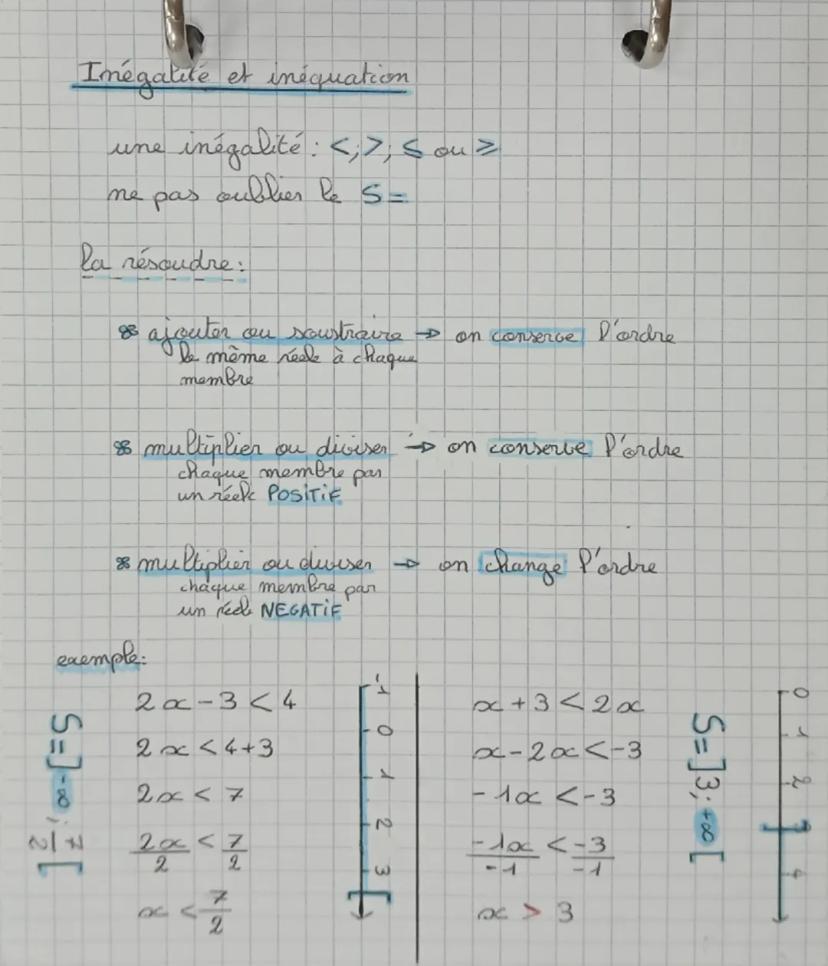 Inégalité et inéquation
une inégalité : <; >; ≤ ou ≥
ne pas oublier le S =
la résoudre :
* ajouter ou soustraire → on conserve l'ordre
le même réel à chaque
membre
* multiplier ou diviser → on conserve l'ordre
chaque membre par
un réel POSITIF
* multiplier ou diviser → on change l'ordre
chaque membre par
un réel NEGATIF
exemple :
2x - 3 < 4
2x < 4+3
2x < 7
2x/2 < 7/2
x < 7/2
S = ]-∞ ; 7/2[
-1 0 1 2 3
x + 3 < 2x
x - 2x < -3
-1x < -3
-1x/-1 < -3/-1
x > 3
S = ]3 ; +∞[
0 1 2 3 4